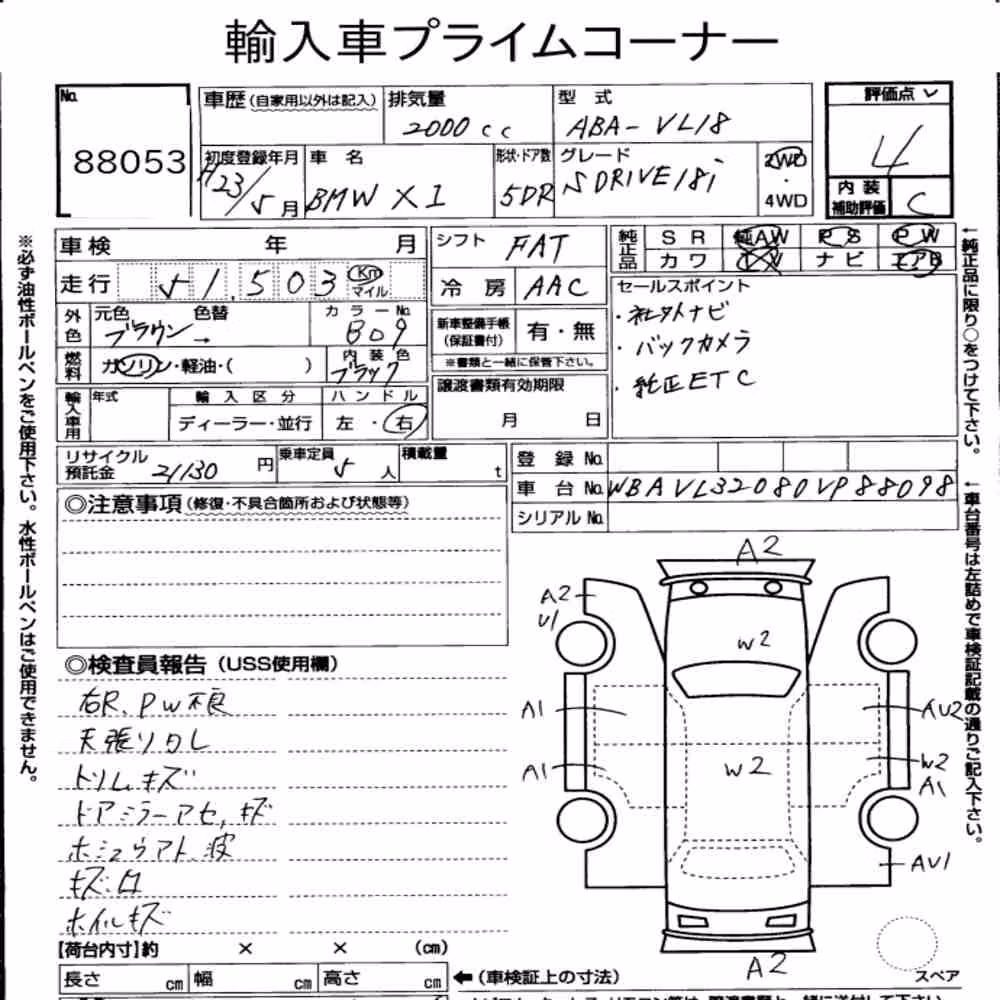 輸入車プライムコーナー
No. 88053
車歴(自家用以外は記入)
排気量 2000 cc
型式 ABA-VL18
評価点 4
初度登録年月 H23/5月
車名 BMW X1
形状・ドア数 5DR
グレード S DRIVE 18i
2WD・4WD
内装補助評価 C
車検 年 月
シフト FAT
純正品 SR 純AW PS PW
カワ ナビ エアB
走行 51,503 Km マイル
冷房 AAC
セールスポイント
・社外ナビ
・バックカメラ
・純正ETC
外色 元色 ブラウン 色替 → カラーNo. B09
新車整備手帳(保証書付) 有・無
※書類と一緒に保管下さい。
燃料 ガソリン・軽油・( )
内装色 ブラック
譲渡書類有効期限
月 日
輸入車用 年式 輸入区分 ハンドル
ディーラー・並行 左・右
リサイクル預託金 21130 円
乗車定員 5人
積載量 t
登録No.
車台No. WBAVL32080VP88098
シリアルNo.
◎注意事項(修復・不具合箇所および状態等)
◎検査員報告(USS使用欄)
右R、PW不良
天張りタレ
トリム、キズ
ドアミラーアセ、キズ
キズ、凹
ホイルキズ
A2
A2
U1
W2
A1
AU2
W2
W2
A1
A1
AU1
A2
スペア
【荷台内寸】約 × × (cm)
長さ cm 幅 cm 高さ cm ←(車検証上の寸法)
※必ず油性ボールペンをご使用下さい。水性ボールペンはご使用できません。
←純正品に限り○をつけて下さい。
←車台番号は左詰めで車検証記載の通りご記入下さい。